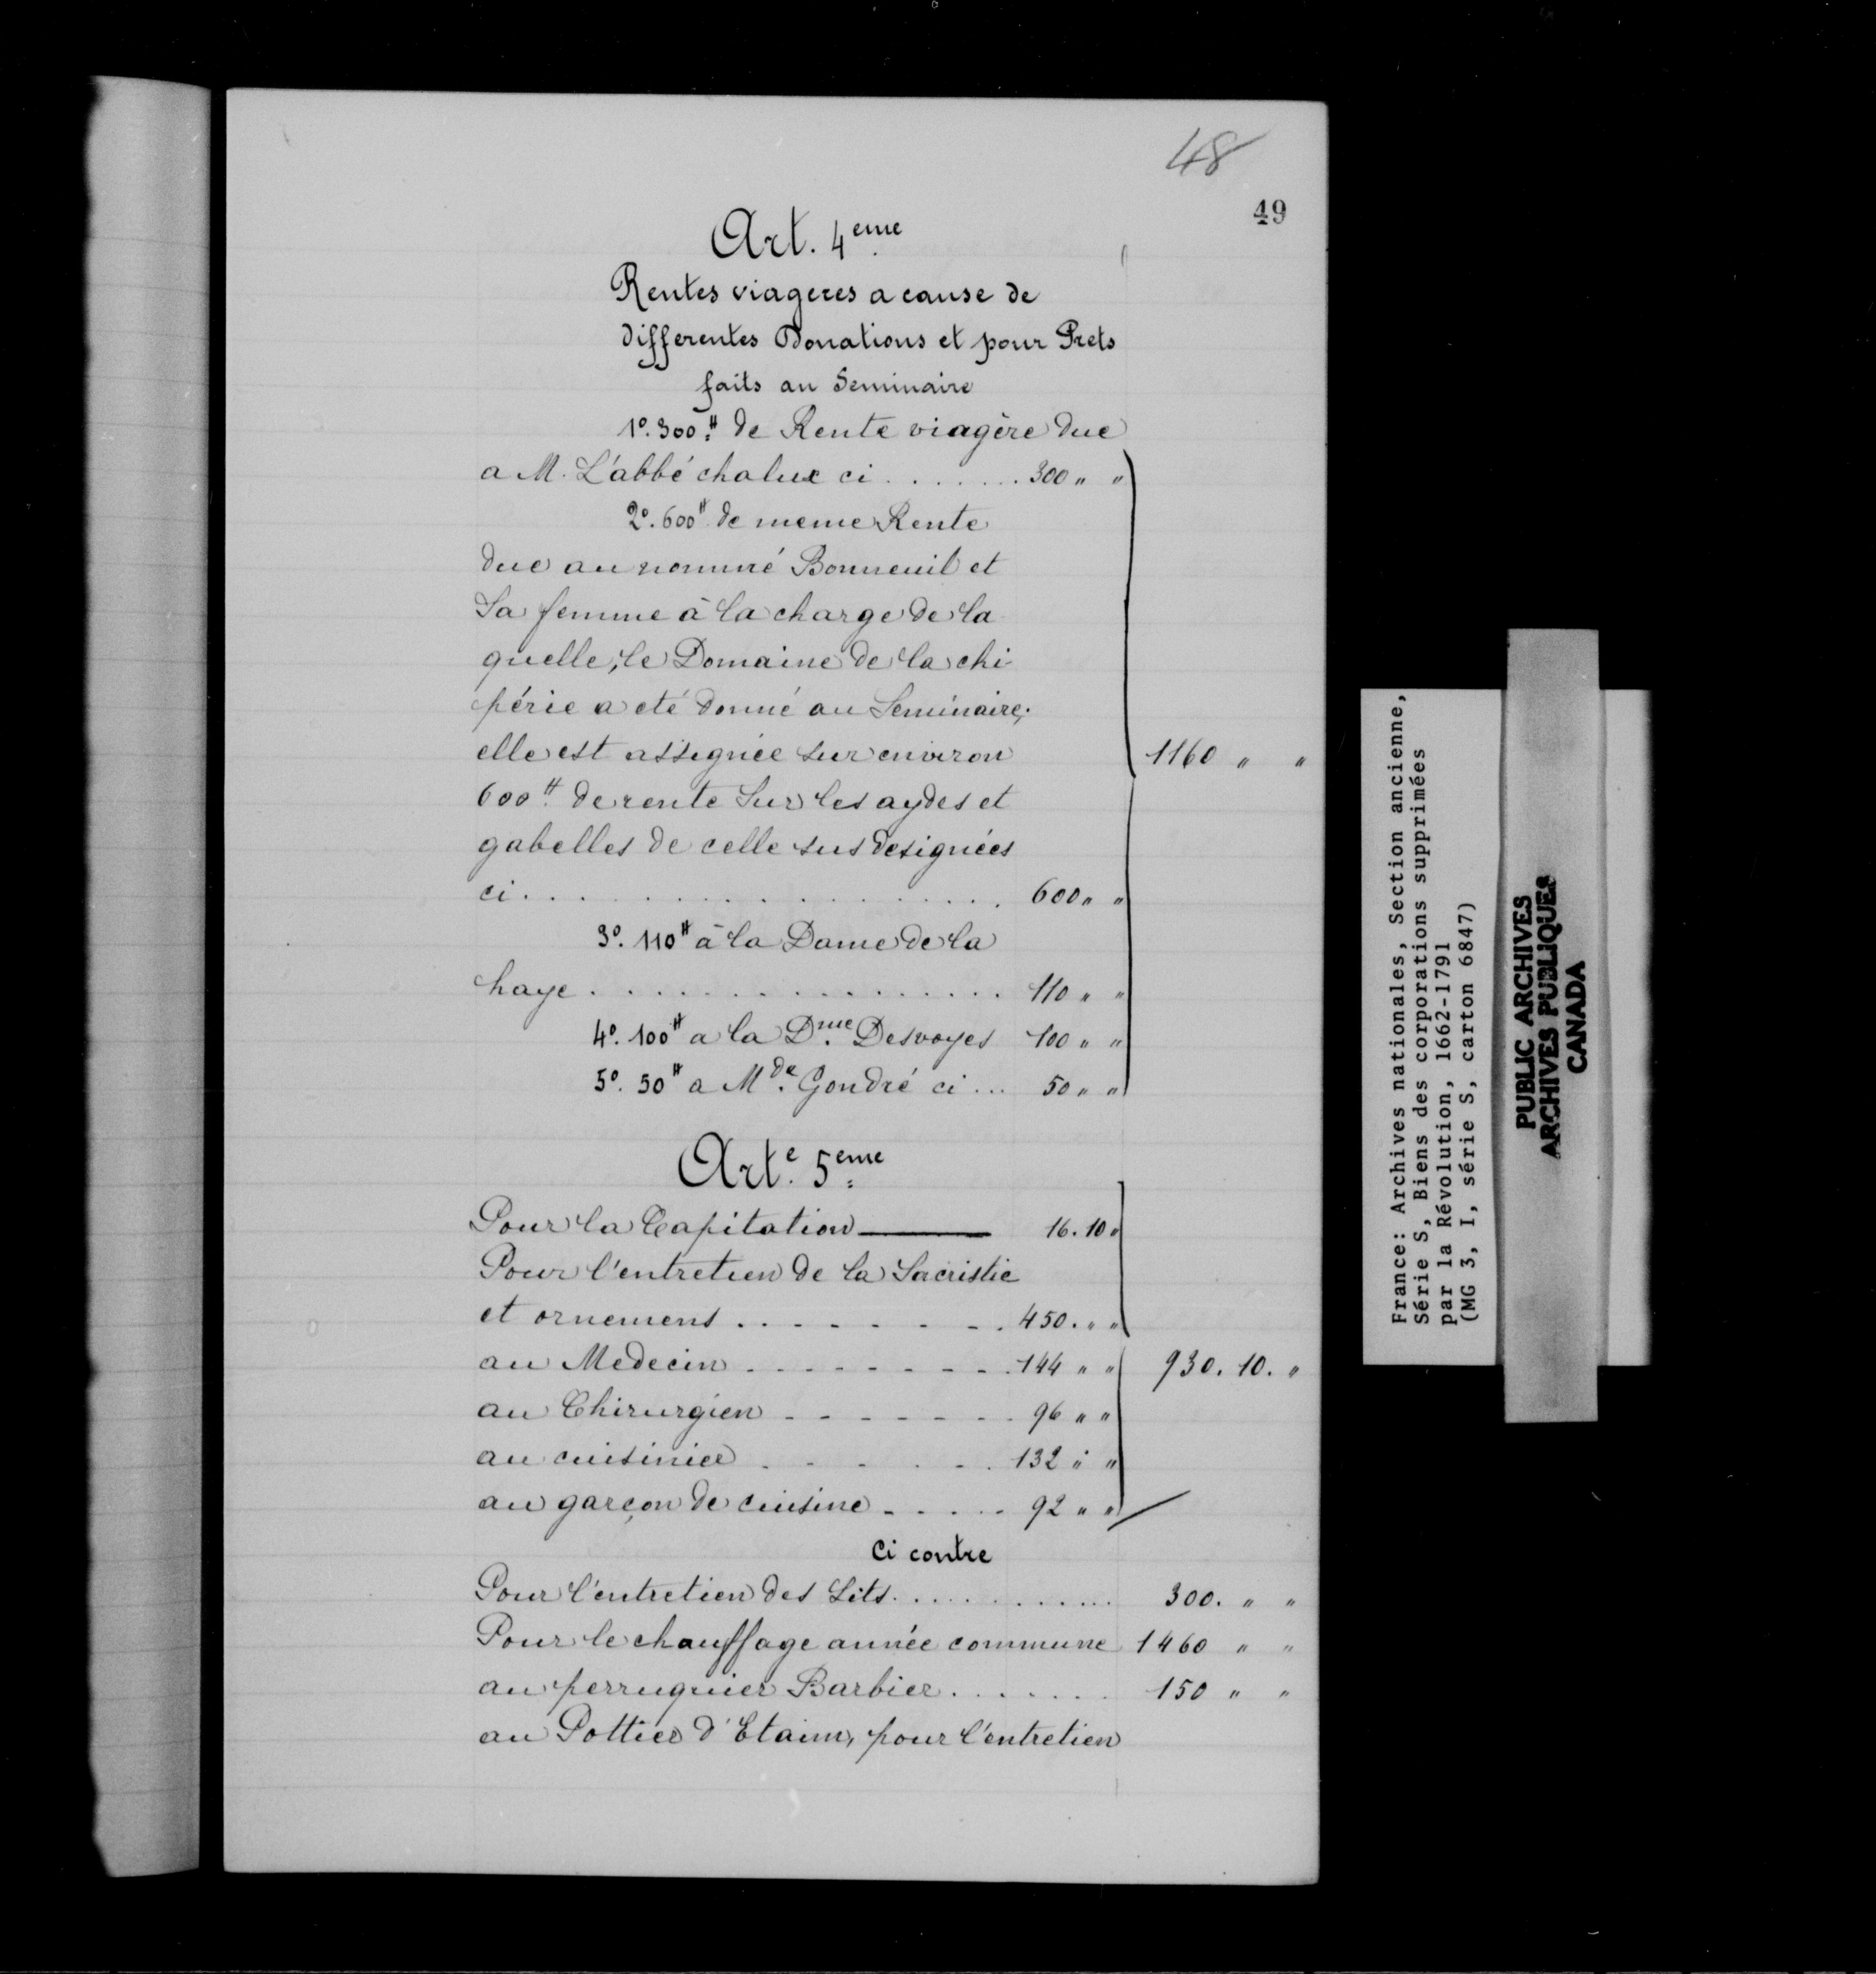 48
49
Art. 4eme
Rentes viageres a cause de
differentes Donations et pour Prets
faits au Seminaire
1º. 300.# de Rente viagère due
a M. L'abbé chalux ci . . . . . . . 300 " "
2º. 600# de meme Rente
due au nommé Bonneuil et
Sa femme à la charge de la
quelle, le Domaine de la chi-
périe a eté donné au Seminaire;
elle est assignée sur environ
1160 " "
600# de rente Sur les aydes et
gabelles de celle sus designées
ci . . . . . . . . . . . . . . . . 600 " "
3º. 110# à la Dame de la
haye . . . . . . . . . . . . . . . . 110 " "
4º. 100# a la Dme. Desvoyes 100 " "
5º. 50# a Mde. Gondré ci ... 50 " "
Arte. 5eme
Pour la Capitation —— 16. 10 "
Pour l'entretien de la Sacristie
et ornemens . . - - - - - . 450. " "
au Medecin . - - - - - - - . 144 " " 930. 10. "
au Chirurgien - - - - - - - 96 " "
au cuisinier . - - - - - . 132 " "
au garçon de cuisine - . . . - 92 " "
Ci contre
Pour l'entretien des Lits . . . . . . . . . . . 300. " "
Pour le chauffage année commune 1460 " "
au perruquier Barbier . . . . . . . 150 " "
au Pottier d'Etaim, pour l'entretien
France: Archives nationales, Section ancienne,
Série S, Biens des corporations supprimées
par la Révolution, 1662-1791
(MG 3, I, série S, carton 6847)
PUBLIC ARCHIVES
ARCHIVES PUBLIQUES
CANADA